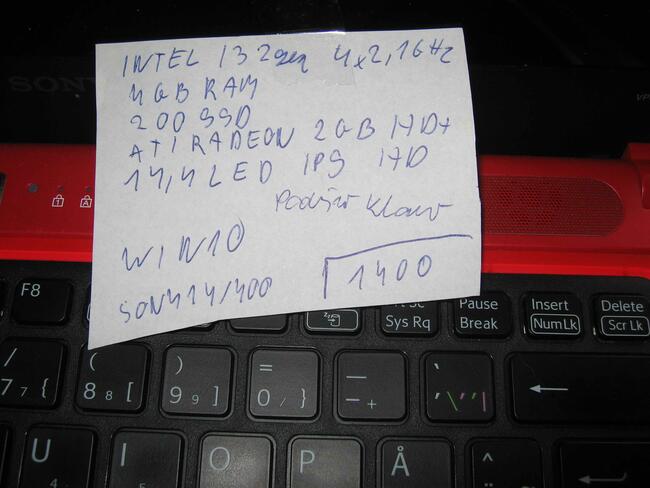 SONY
INTEL I3 2gen 4x2,1GHz
4GB RAM
200 SSD
ATI RADEON 2GB HD+
14,4 LED IPS HD
Podśw Klaw
WIN10
SONY14/400
1400
1
A
F8
Sys Rq
Pause
Break
Insert
NumLk
Delete
Scr Lk
/
7 7 {
(
8 8 [
)
9 9 ]
=
0 / }
—
- +
U
I
O
O
P
Å
4
5
^